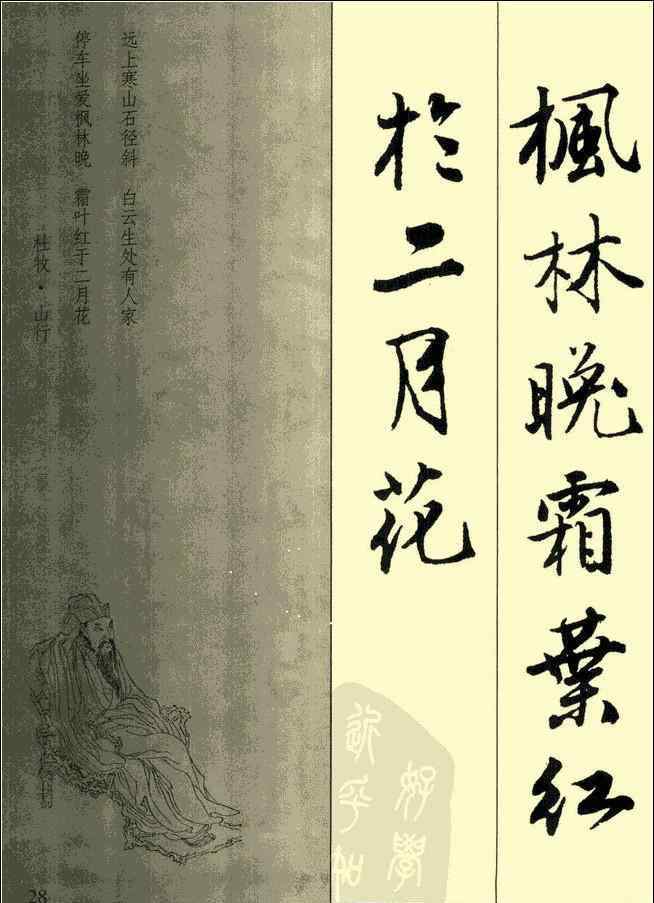 楓林晚霜葉紅
於二月花
远上寒山石径斜　白云生处有人家
停车坐爱枫林晚　霜叶红于二月花
杜牧·山行
好學
近乎知
28